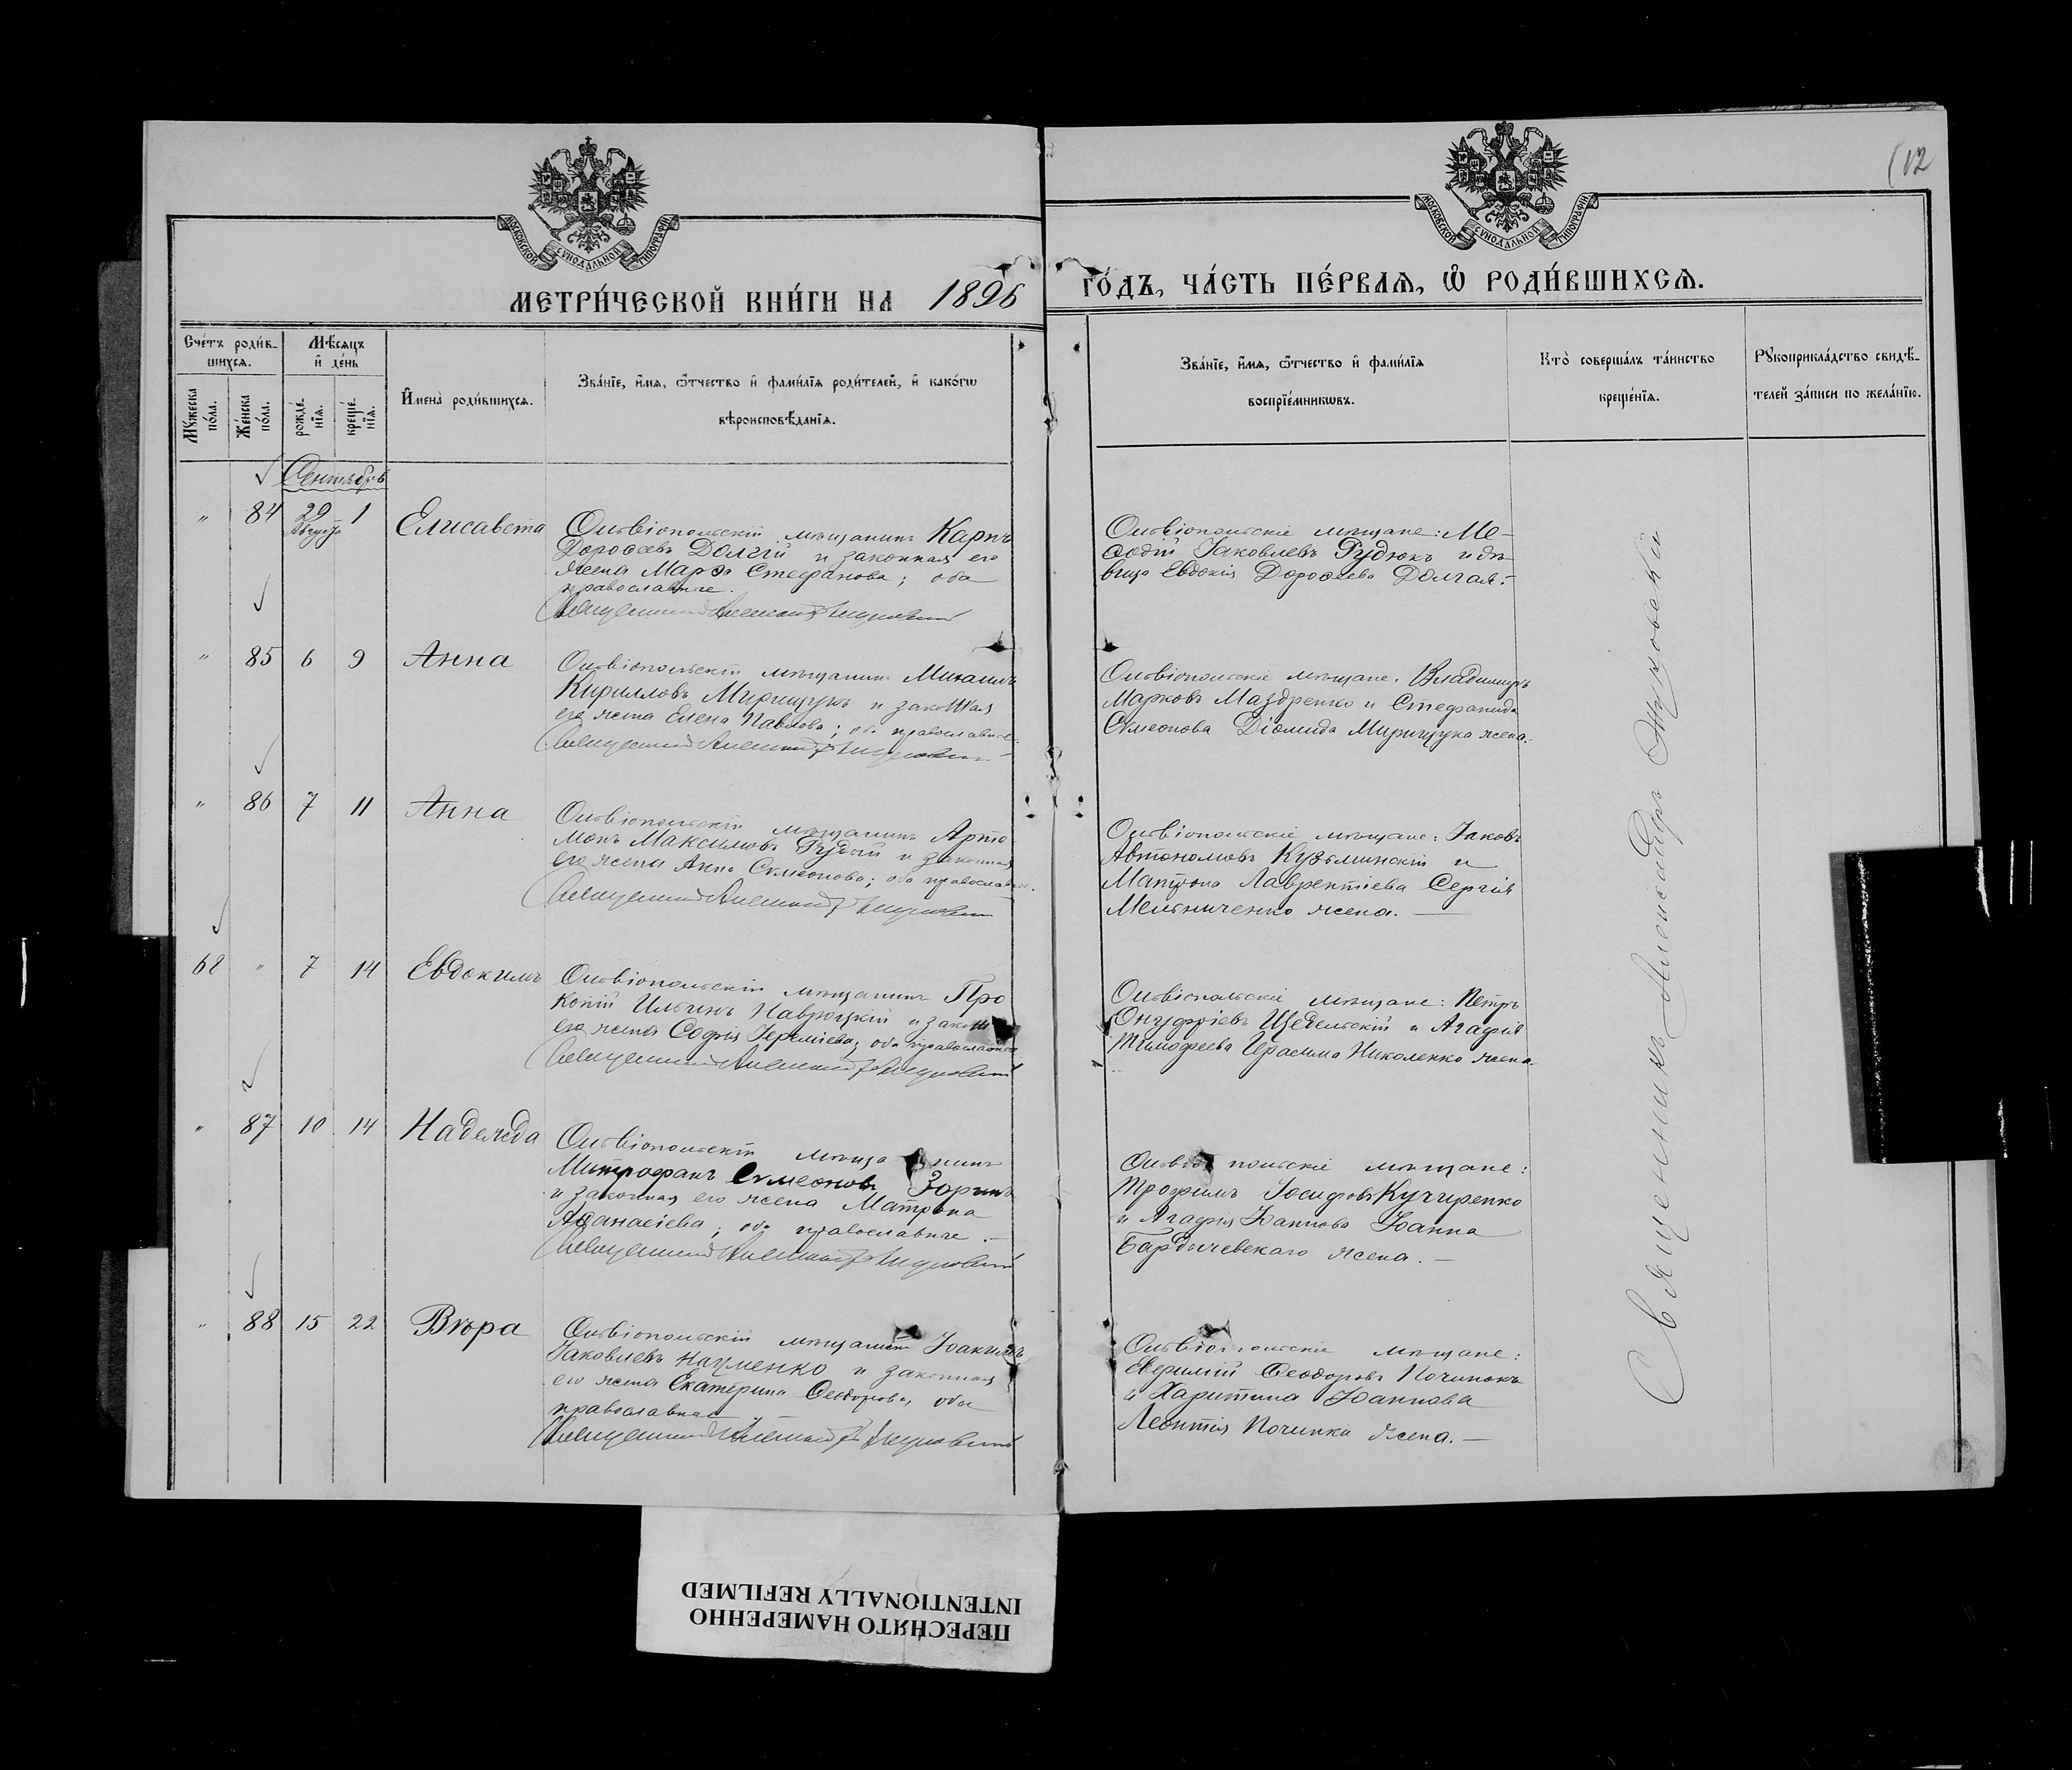 112
МОСКОВСКОЙ СѴНОДАЛЬНОЙ ТИПОГРАФІИ
МОСКОВСКОЙ СѴНОДАЛЬНОЙ ТИПОГРАФІИ
МЕТРИ́ЧЕСКОЙ КНИ́ГИ НА 1896 ГО́ДЪ, ЧА́СТЬ ПЕ́РВАѦ, Ѡ҆ РОДИ́ВШИХСѦ.
Сче́тъ роди́в-
шихсѧ.
Мѣ́сѧцъ
и҆ де́нь
Мꙋ́жеска
по́ла.
Же́нска
по́ла.
рожде́-
нїѧ.
креще́-
нїѧ.
И҆мена̀ роди́вшихсѧ.
Зва́нїе, и҆́мѧ, ѻ҆́тчество и҆ фамѝлїѧ роди́телей, и҆ како́гѡ
вѣроисповѣ́данїѧ.
Зва́нїе, и҆́мѧ, ѻ҆́тчество и҆ фамѝлїѧ
воспрїе́мникѡвъ.
Кто̀ соверша́лъ та́инство
креще́нїѧ.
Рꙋкоприкла́дство свидѣ́-
телей за́писи по жела́нїю.
Сентябрь
" 84 29 Августа 1 Елисавета
Ольвіопольскій мѣщанинъ Карпъ
Дороѳеевъ Долгій и законная его
жена Марѳа Стефанова; оба
православные.
Священникъ Александръ
Ольвіопольскіе мѣщане: Ме-
ѳодій Іаковлевъ Рудюкъ и дѣ-
вица Евдокія Дороѳеева Долгая.
" 85 6 9 Анна
Ольвіопольскій мѣщанинъ Михаилъ
Кирилловъ Мирищукъ и законная
его жена Елена Павлова; оба православные.
Священникъ Александръ
Ольвіопольскіе мѣщане: Владимиръ
Марковъ Маздренко и Стефанида
Симеонова Діомида Мирищука жена.
" 86 7 11 Анна
Ольвіопольскій мѣщанинъ Арте
монъ Максимовъ Рудый и законная
его жена Анна Симеонова; оба православные.
Священникъ Александръ
Ольвіопольскіе мѣщане: Іаковъ
Автономовъ Кузьминскій и
Матрона Лаврентіева Сергія
Мельниченко жена.
68 " 7 14 Евдокимъ
Ольвіопольскій мѣщанинъ Про
копій Ильинъ Навроцкій и законная
его жена Софія Іереміева; оба православные
Священникъ Александръ
Ольвіопольскіе мѣщане: Петръ
Онуфріевъ Щебельскій и Агафія
Тимофеева Герасима Николенко жена.
" 87 10 14 Надежда
Ольвіопольскій мѣщанинъ
Митрофанъ Симеоновъ Зоринъ
и законная его жена Матрона
Аѳанасіева; оба православные.
Священникъ Александръ
Ольвіопольскіе мѣщане:
Трофимъ Іосифовъ Кучиренко
и Агафія Іоаннова Іоанна
Бардичевскаго жена.
" 88 15 22 Вѣра
Ольвіопольскій мѣщанинъ Іоакимъ
Іаковлевъ Науменко и законная
его жена Екатерина Ѳеодорова, оба
православные
Священникъ Александръ
Ольвіопольскіе мѣщане:
Евфимій Ѳеодоровъ Починокъ
и Харитина Іоаннова
Леонтія Починка жена.
Священникъ Александръ
ПЕРЕСНЯТО НАМЕРЕННО
INTENTIONALLY REFILMED